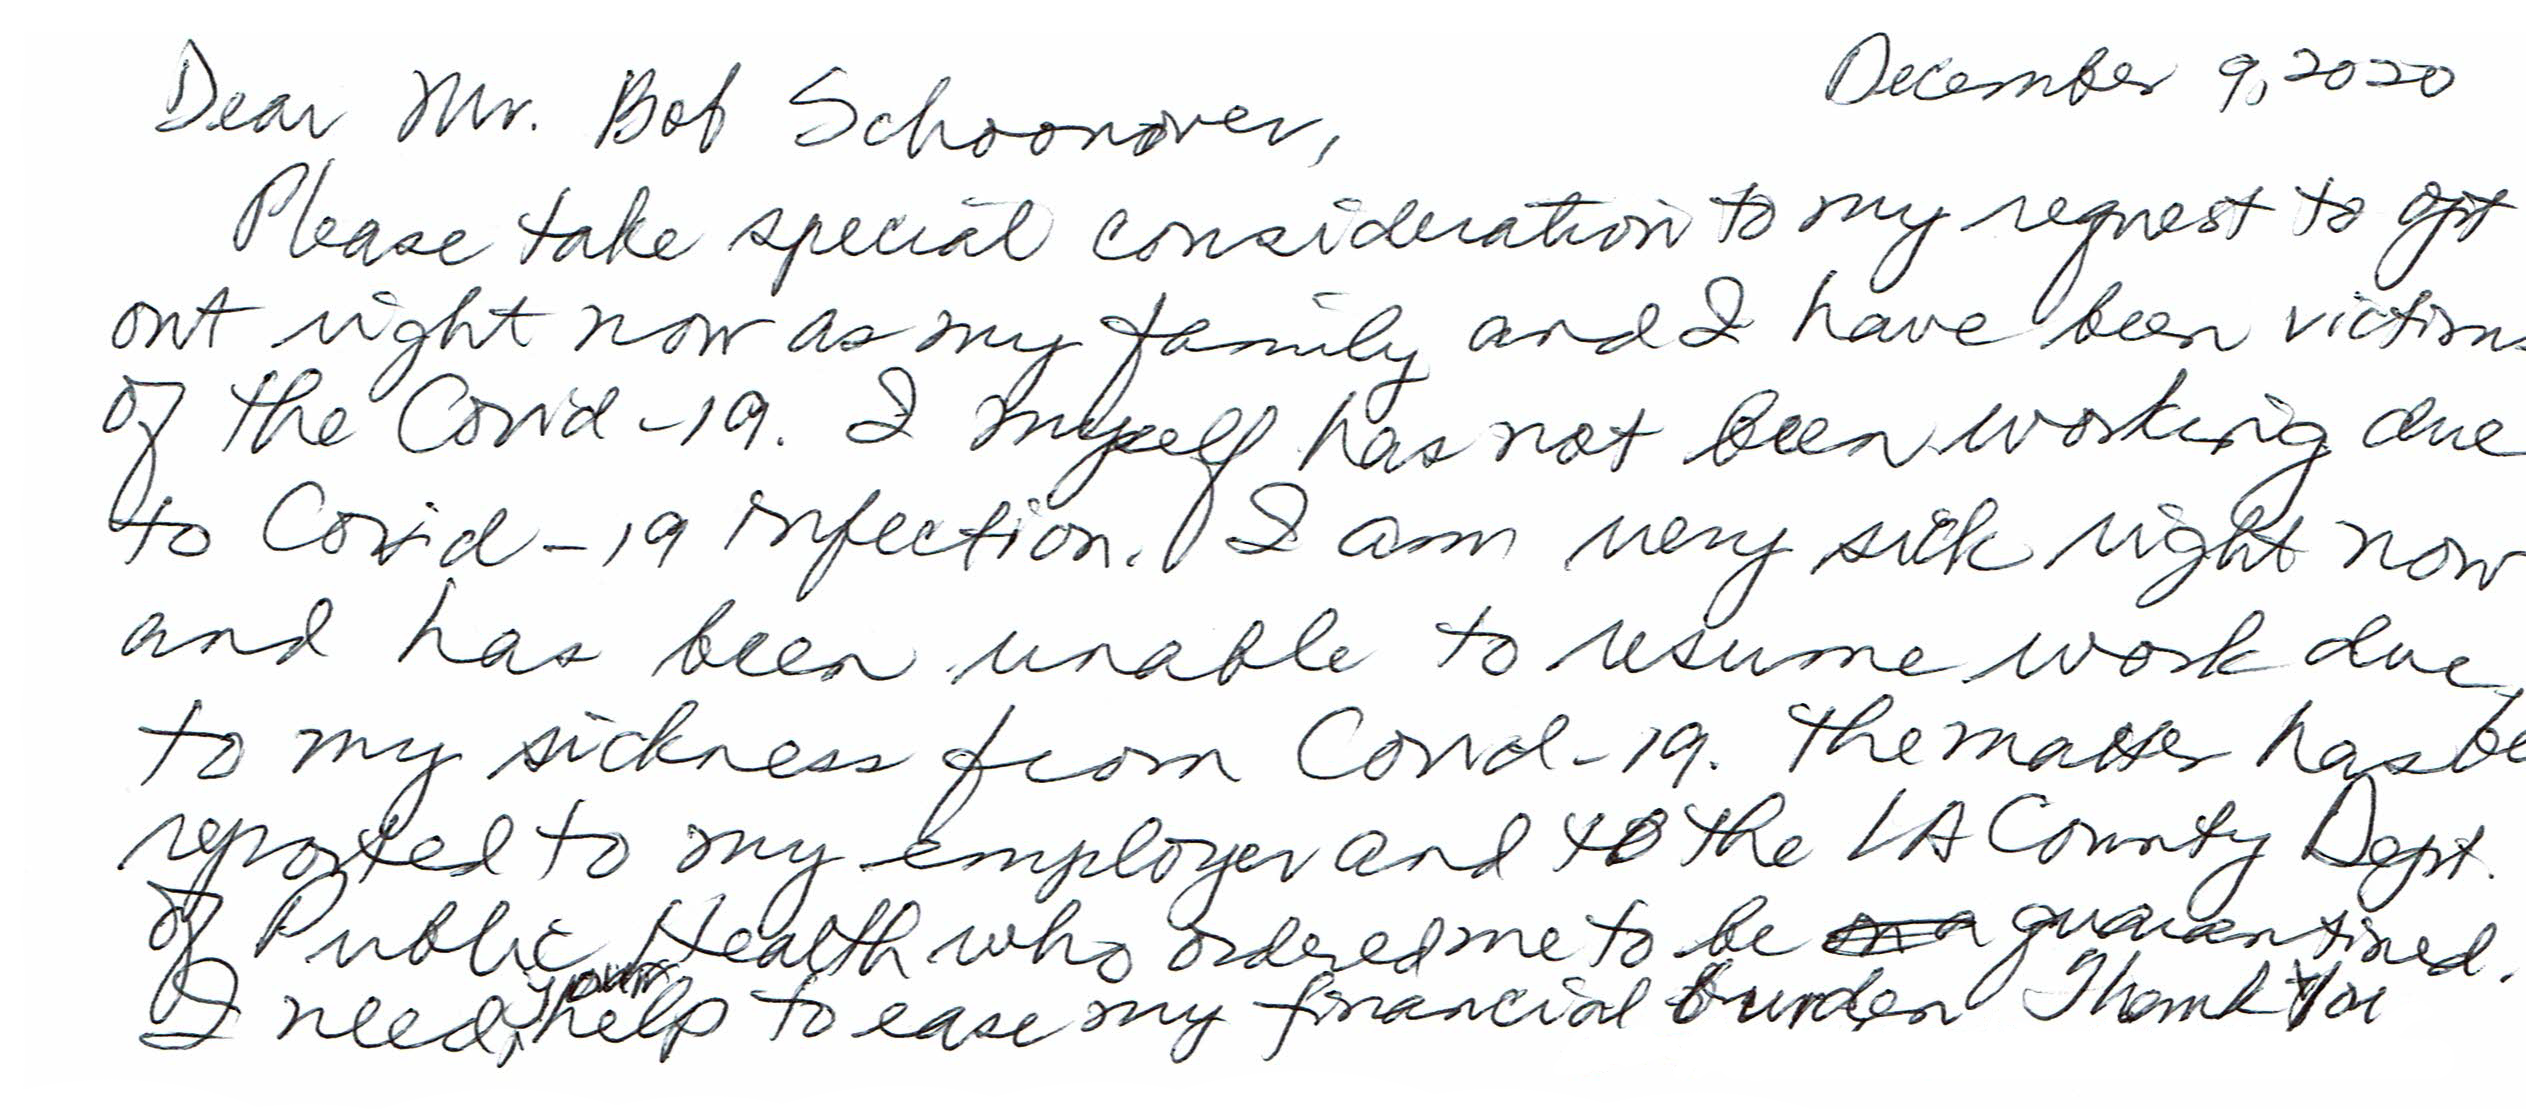 December 9, 2020
Dear Mr. Bob Schoonover,
Please take special consideration to my request to opt
out right now as my family and I have been victims
of the Covid-19. I myself has not been working due
to Covid-19 infection. I am very sick right now
and has been unable to resume work due
to my sickness from Covid-19. the matter has be
reported to my employer and to the LA County Dept.
of Public Health who ordered me to be quarantined.
I need your help to ease my financial burden Thank You